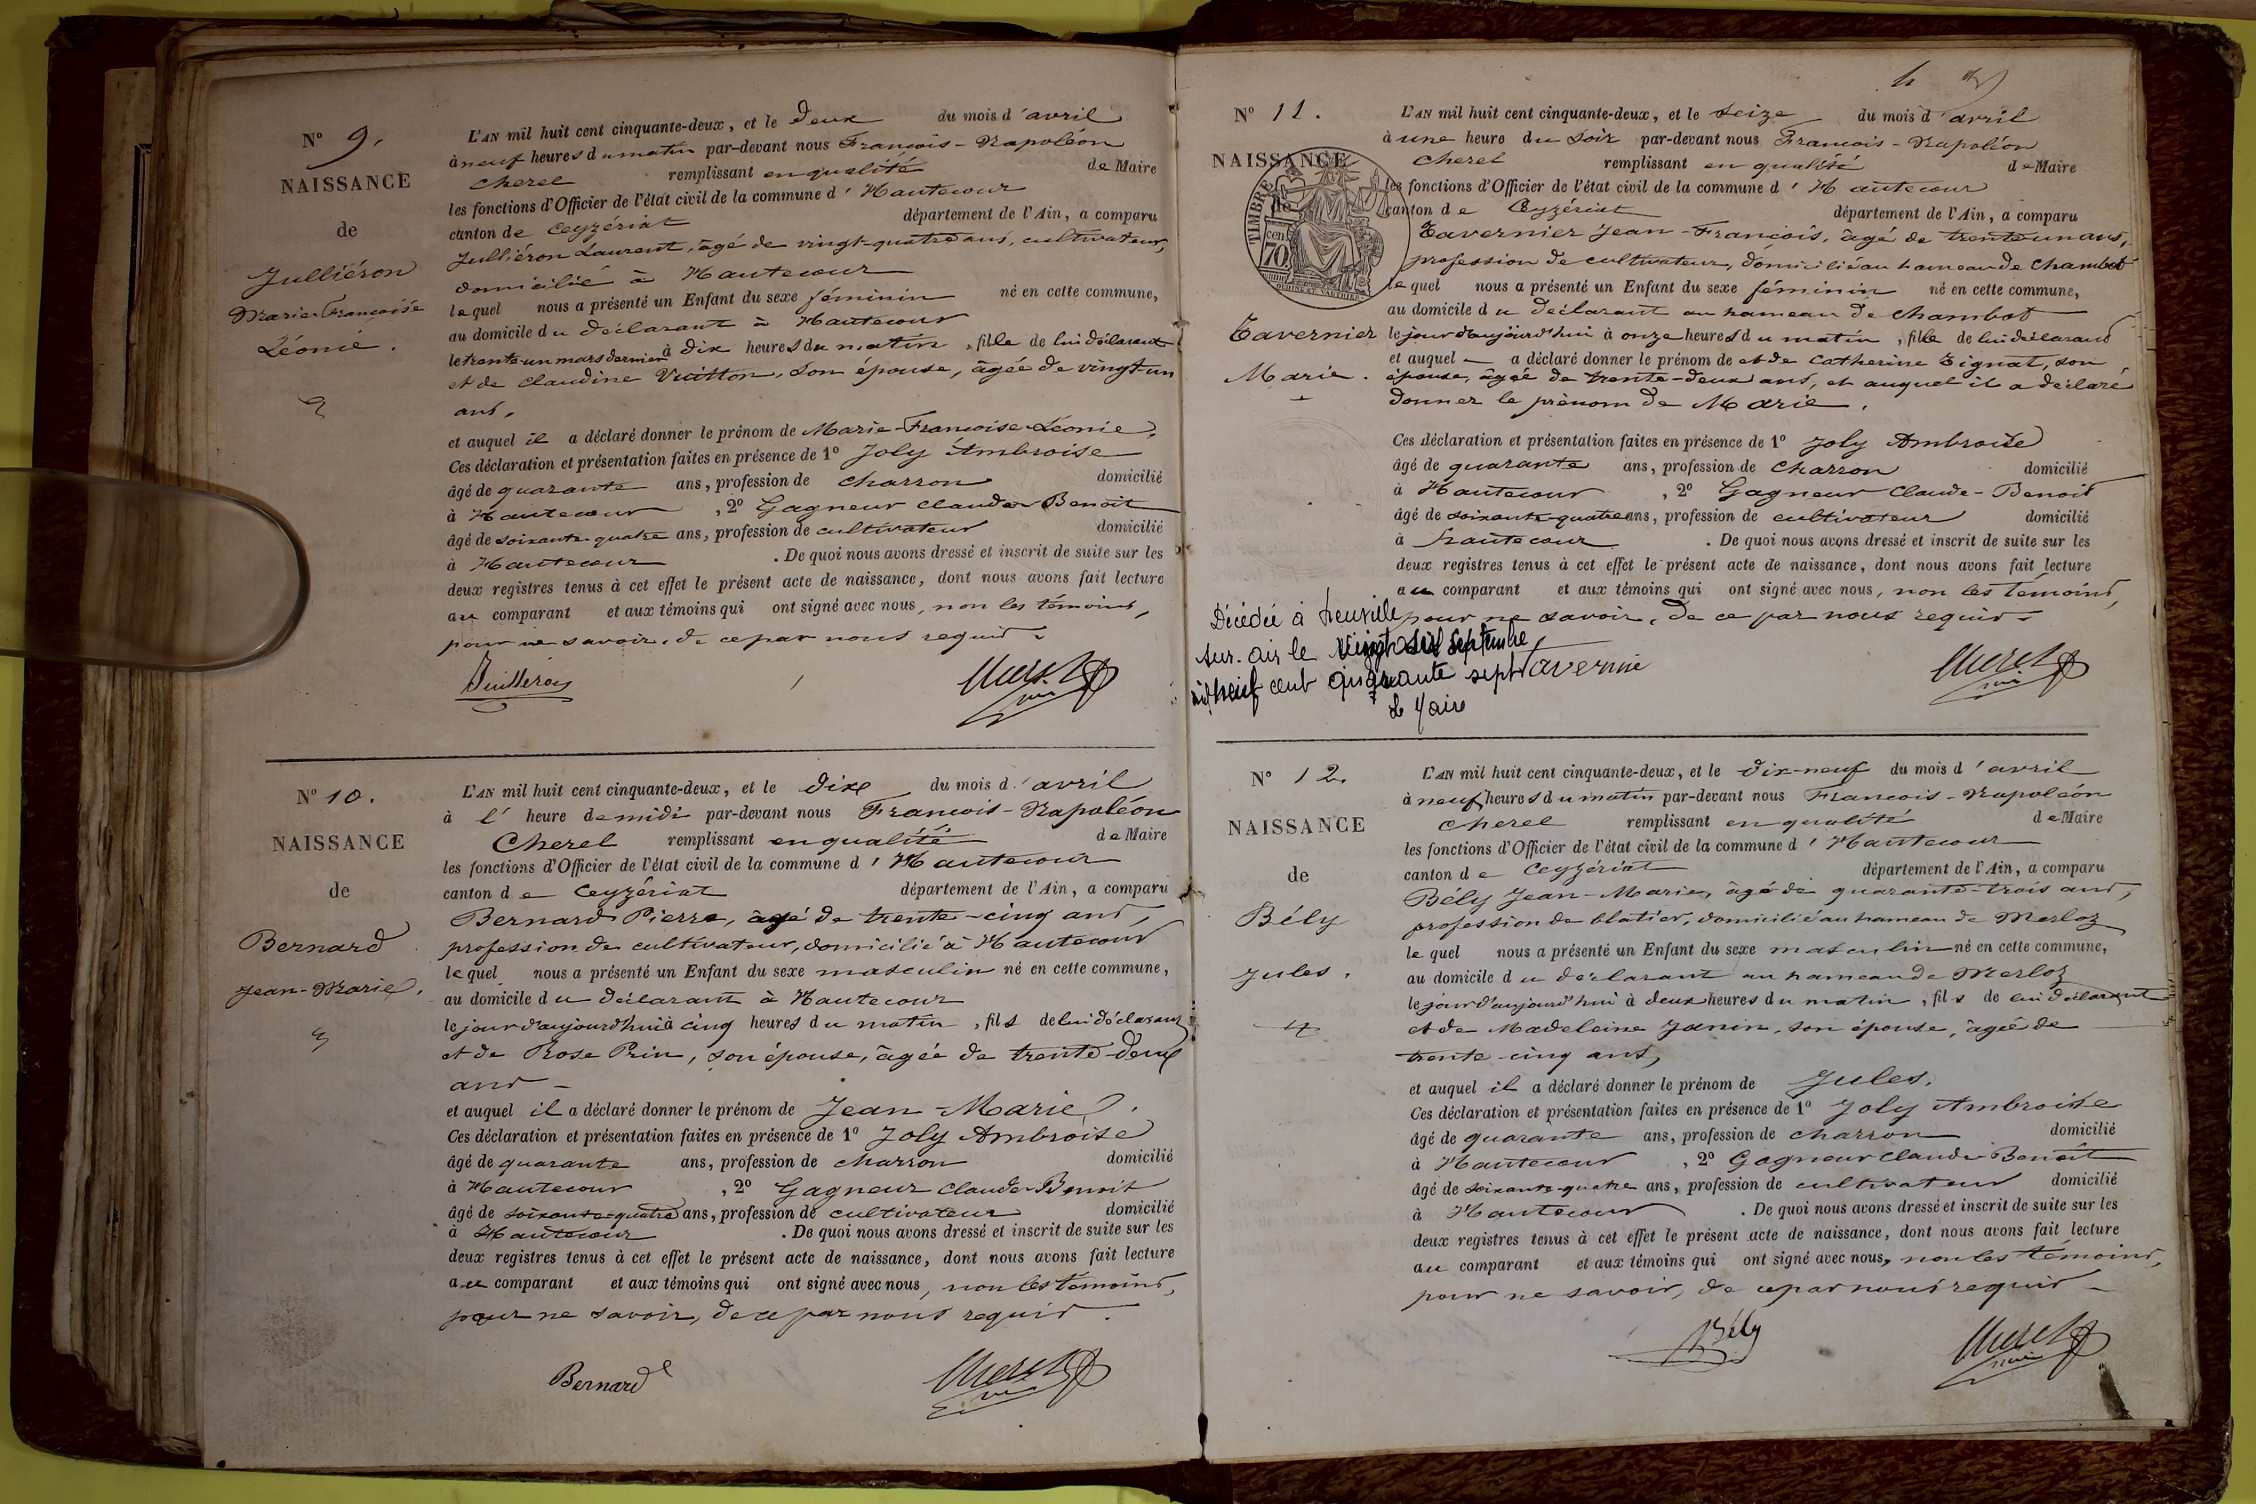 N° 9.
NAISSANCE
de
Julliéron
Marie-Françoise
Léonie.
L'AN mil huit cent cinquante-deux, et le deux du mois d'avril
à neuf heures du matin par-devant nous François-Napoléon
Cherel remplissant en qualité de Maire
les fonctions d'Officier de l'état civil de la commune d'Hautecour
canton de Ceyzériat département de l'Ain, a comparu
Julliéron Laurent, âgé de vingt-quatre ans, cultivateur,
domicilié à Hautecour
lequel nous a présenté un Enfant du sexe féminin né en cette commune,
au domicile du déclarant à Hautecour
le trente-un mars dernier à dix heures du matin, fille de lui déclarant
et de Claudine Vuitton, son épouse, âgée de vingt-un
ans,
et auquel il a déclaré donner le prénom de Marie-Françoise-Léonie,
Ces déclaration et présentation faites en présence de 1° Joly Ambroise
âgé de quarante ans, profession de charron domicilié
à Hautecour, 2° Gagneur Claude-Benoit
âgé de soixante-quatre ans, profession de cultivateur domicilié
à Hautecour. De quoi nous avons dressé et inscrit de suite sur les
deux registres tenus à cet effet le présent acte de naissance, dont nous avons fait lecture
au comparant et aux témoins qui ont signé avec nous, non les témoins,
pour ne savoir, de ce par nous requis.
Juilleron Cherel
maire
N° 10.
NAISSANCE
de
Bernard
Jean-Marie.
L'AN mil huit cent cinquante-deux, et le dix du mois d'avril
à l'heure de midi par-devant nous François-Napoléon
Cherel remplissant en qualité de Maire
les fonctions d'Officier de l'état civil de la commune d'Hautecour
canton de Ceyzériat département de l'Ain, a comparu
Bernard Pierre, âgé de trente-cinq ans,
profession de cultivateur, domicilié à Hautecour
lequel nous a présenté un Enfant du sexe masculin né en cette commune,
au domicile du déclarant à Hautecour
le jour d'aujourd'hui à cinq heures du matin, fils de lui déclarant
et de Rose Prin, son épouse, âgée de trente-deux
ans
et auquel il a déclaré donner le prénom de Jean-Marie.
Ces déclaration et présentation faites en présence de 1° Joly Ambroise
âgé de quarante ans, profession de charron domicilié
à Hautecour, 2° Gagneur Claude-Benoit
âgé de soixante-quatre ans, profession de cultivateur domicilié
à Hautecour. De quoi nous avons dressé et inscrit de suite sur les
deux registres tenus à cet effet le présent acte de naissance, dont nous avons fait lecture
au comparant et aux témoins qui ont signé avec nous, non les témoins,
pour ne savoir, de ce par nous requis.
Bernard Cherel
4
N° 11.
NAISSANCE
de
TIMBRE
70 cent
Tavernier
Marie.
L'AN mil huit cent cinquante-deux, et le seize du mois d'avril
à une heure du soir par-devant nous François-Napoléon
Cherel remplissant en qualité de Maire
les fonctions d'Officier de l'état civil de la commune d'Hautecour
canton de Ceyzériat département de l'Ain, a comparu
Tavernier Jean-François, âgé de trente-un ans,
profession de cultivateur, domicilié au hameau de Chambot
lequel nous a présenté un Enfant du sexe féminin né en cette commune,
au domicile du déclarant au hameau de Chambot
le jour d'aujourd'hui à onze heures du matin, fille de lui déclarant
et auquel a déclaré donner le prénom de et de Catherine Tignat, son
épouse, âgée de trente-deux ans, et auquel il a déclaré
donner le prénom de Marie.
Ces déclaration et présentation faites en présence de 1° Joly Ambroise
âgé de quarante ans, profession de charron domicilié
à Hautecour, 2° Gagneur Claude-Benoit
âgé de soixante-quatre ans, profession de cultivateur domicilié
à hautecour. De quoi nous avons dressé et inscrit de suite sur les
deux registres tenus à cet effet le présent acte de naissance, dont nous avons fait lecture
au comparant et aux témoins qui ont signé avec nous, non les témoins,
pour ne savoir, de ce par nous requis.
Décédée à Neuville
sur-ain le vingt six septembre
mil neuf cent cinquante sept
Le Maire
Tavernie Cherel
maire
N° 12.
NAISSANCE
de
Bély
Jules.
L'AN mil huit cent cinquante-deux, et le dix-neuf du mois d'avril
à neuf heures du matin par-devant nous François-Napoléon
Cherel remplissant en qualité de Maire
les fonctions d'Officier de l'état civil de la commune d'Hautecour
canton de Ceyzériat département de l'Ain, a comparu
Bély Jean-Marie, âgé de quarante-trois ans,
profession de blatier, domicilié au hameau de Merloz
lequel nous a présenté un Enfant du sexe masculin né en cette commune,
au domicile du déclarant au hameau de Merloz
le jour d'aujourd'hui à deux heures du matin, fils de lui déclarant
et de Madeleine Janin, son épouse, âgée de
trente-cinq ans,
et auquel il a déclaré donner le prénom de Jules.
Ces déclaration et présentation faites en présence de 1° Joly Ambroise
âgé de quarante ans, profession de charron domicilié
à Hautecour, 2° Gagneur Claude-Benoît
âgé de soixante-quatre ans, profession de cultivateur domicilié
à Hautecour. De quoi nous avons dressé et inscrit de suite sur les
deux registres tenus à cet effet le présent acte de naissance, dont nous avons fait lecture
au comparant et aux témoins qui ont signé avec nous, non les témoins,
pour ne savoir, de ce par nous requis
Bély Cherel
maire